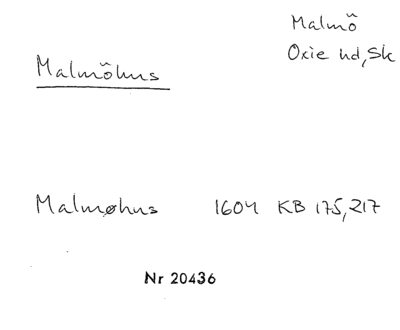 Malmö
Oxie hd, Sk
Malmöhus
Malmøhus 1604 KB 175, 217
Nr 20436